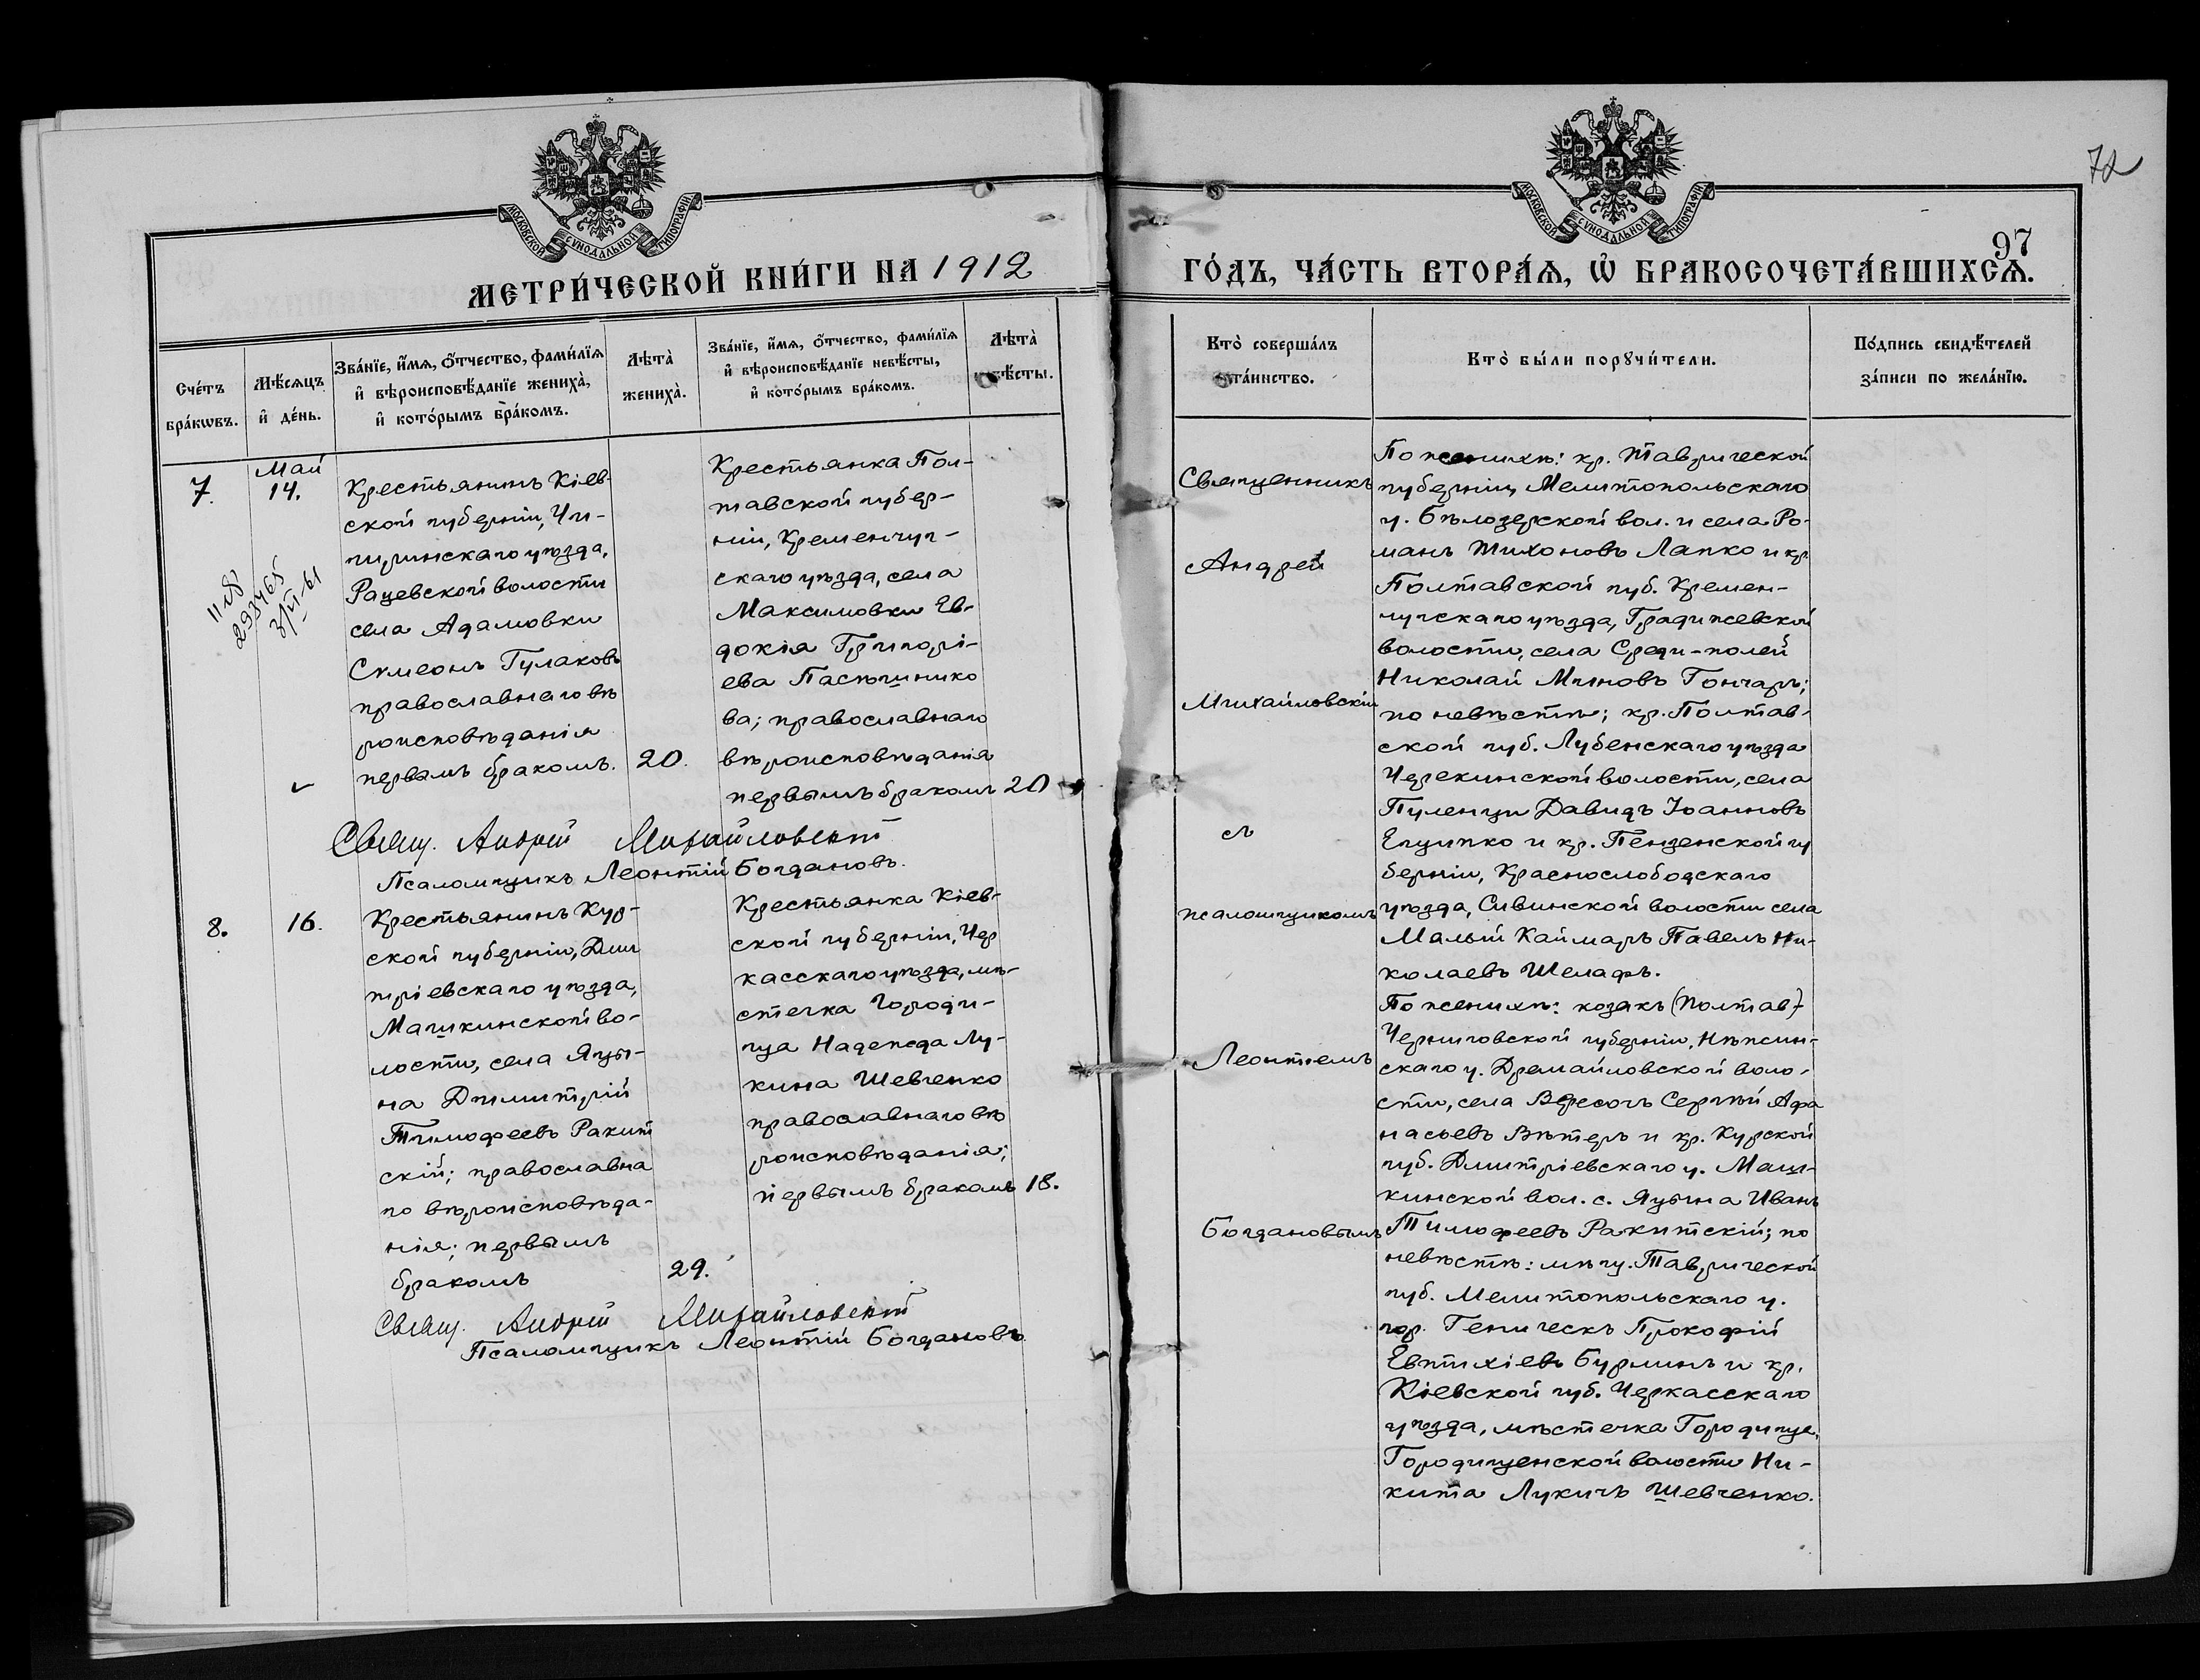 72
97
МОСКОВСКОЙ СѴНОДАЛЬНОЙ ТИПОГРАФІИ
МЕТРИ́ЧЕСКОЙ КНИ́ГИ НА 1912
Сче́тъ бра́кѡвъ.
Мѣ́сяцъ и҆ де́нь.
Зва́нїе, и҆́мя, ѻ҆́тчество, фами́лїя и҆ вѣроисповѣ́данїе жениха̀, и҆ кото́рымъ бра́комъ.
Лѣта̀ жениха̀.
Зва́нїе, и҆́мя, ѻ҆́тчество, фами́лїя и҆ вѣроисповѣ́данїе невѣ́сты, и҆ кото́рымъ бра́комъ.
Лѣта̀ невѣ́сты.
7.
Май
14.
Крестьянинъ Кіев-
ской губерніи, Чи-
гиринскаго уѣзда,
Рацевской волости
села Адамовки
Сѵмеонъ Гулаковъ
православнаго вѣ
роисповѣданія
первымъ бракомъ.
20.
Крестьянка Пол-
тавской губер-
ніи, Кременчуг-
скаго уѣзда, села
Максимовки Ев-
докія Григорі-
ева Пасѣшнико
ва; православнаго
вѣроисповѣданія
первымъ бракомъ
20
Свящ. Андрей Михайловскій
Псаломщикъ Леонтій Богдановъ.
8.
16.
Крестьянинъ Кур-
ской губерніи, Дми
тріевскаго уѣзда,
Машкинской во-
лости, села Яцы-
на Димитрій
Тимофеевъ Ракит
скій; православна
го вѣроисповѣда-
нія; первымъ
бракомъ
29.
Крестьянка Кіев-
ской губерніи, Чер
касскаго уѣзда, мѣ-
стечка Городи-
ща Надежда Лу-
кина Шевченко
православнаго вѣ
роисповѣданія;
первымъ бракомъ
18.
Свящ. Андрей Михайловскій
Псаломщикъ Леонтій Богдановъ
МОСКОВСКОЙ СѴНОДАЛЬНОЙ ТИПОГРАФІИ
ГО́ДЪ, ЧА́СТЬ ВТОРА́Я, Ѡ҆ БРАКОСОЧЕТА́ВШИХСЯ.
Кто̀ соверша́лъ та́инство.
Кто̀ бы́ли порꙋчи́тели.
По́дпись свидѣ́телей за́писи по жела́нїю.
Священникъ
Андрей
Михайловскій
съ
псаломщикомъ
Леонтіемъ
Богдановымъ
По женихѣ: кр. Таврической
губерніи Мелитопольскаго
у. Бѣлозерской вол. и села Ро-
манъ Тихоновъ Лапко и кр
Полтавской губ. Кремен-
чугскаго уѣзда, Градижевской
волости, села Среди-полей
Николай Миновъ Гончаръ;
по невѣстѣ; кр. Полтав-
ской губ. Лубенскаго уѣзда
волости, села
Пуленци Давидъ Іоанновъ
Ещипко и кр. Пензенской гу
берніи, Краснослободскаго
уѣзда, Сивинской волости села
Малый Каймаръ Павелъ Ни-
колаевъ Шелафъ.
По женихѣ: козакъ (Полтав)
Черниговской губерніи, Нѣжин-
скаго у. Дремайловской воло-
сти, села Вересочь Сергѣй Афа
насьевъ Вѣтеръ и кр. Курской
губ. Дмитріевскаго у. Маш-
кинской вол. с. Яцына Иванъ
Тимофеевъ Ракитскій; по
невѣстѣ: мѣщ. Таврической
губ. Мелитопольскаго у.
гор. Геническъ Прокофій
Евтихіевъ Бурминъ и кр.
Кіевской губ. Черкасскаго
уѣзда, мѣстечка Городища,
Городищенской волости Ни-
кита Лукичъ Шевченко.